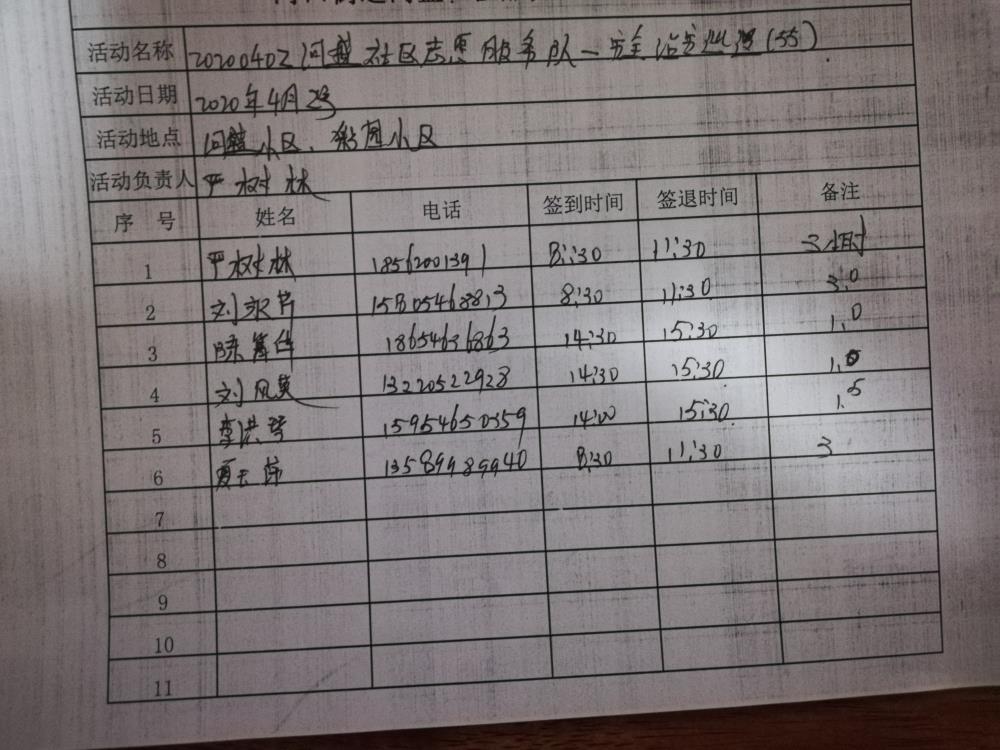 活动名称 20200402 社区志愿服务队一安全 (55)
活动日期 2020年4月2号
活动地点 小区、 小区
活动负责人 严树林
序号 姓名 电话 签到时间 签退时间 备注
1 严树林 18562001391 8:30 11:30 3小时
2 刘 8:30 11:30 3.0
3 18654636863 14:30 15:30 1.0
4 刘凤英 13220522928 14:30 15:30 1.0
5 李洪 15954650359 14:00 15:30 1.5
6 夏 13589989940 8:30 11:30 3
7
8
9
10
11